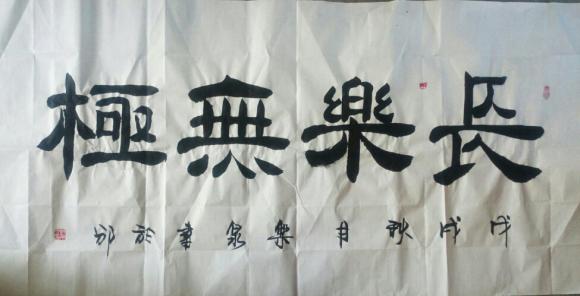 長樂無極
戊戌秋月樂泉書於